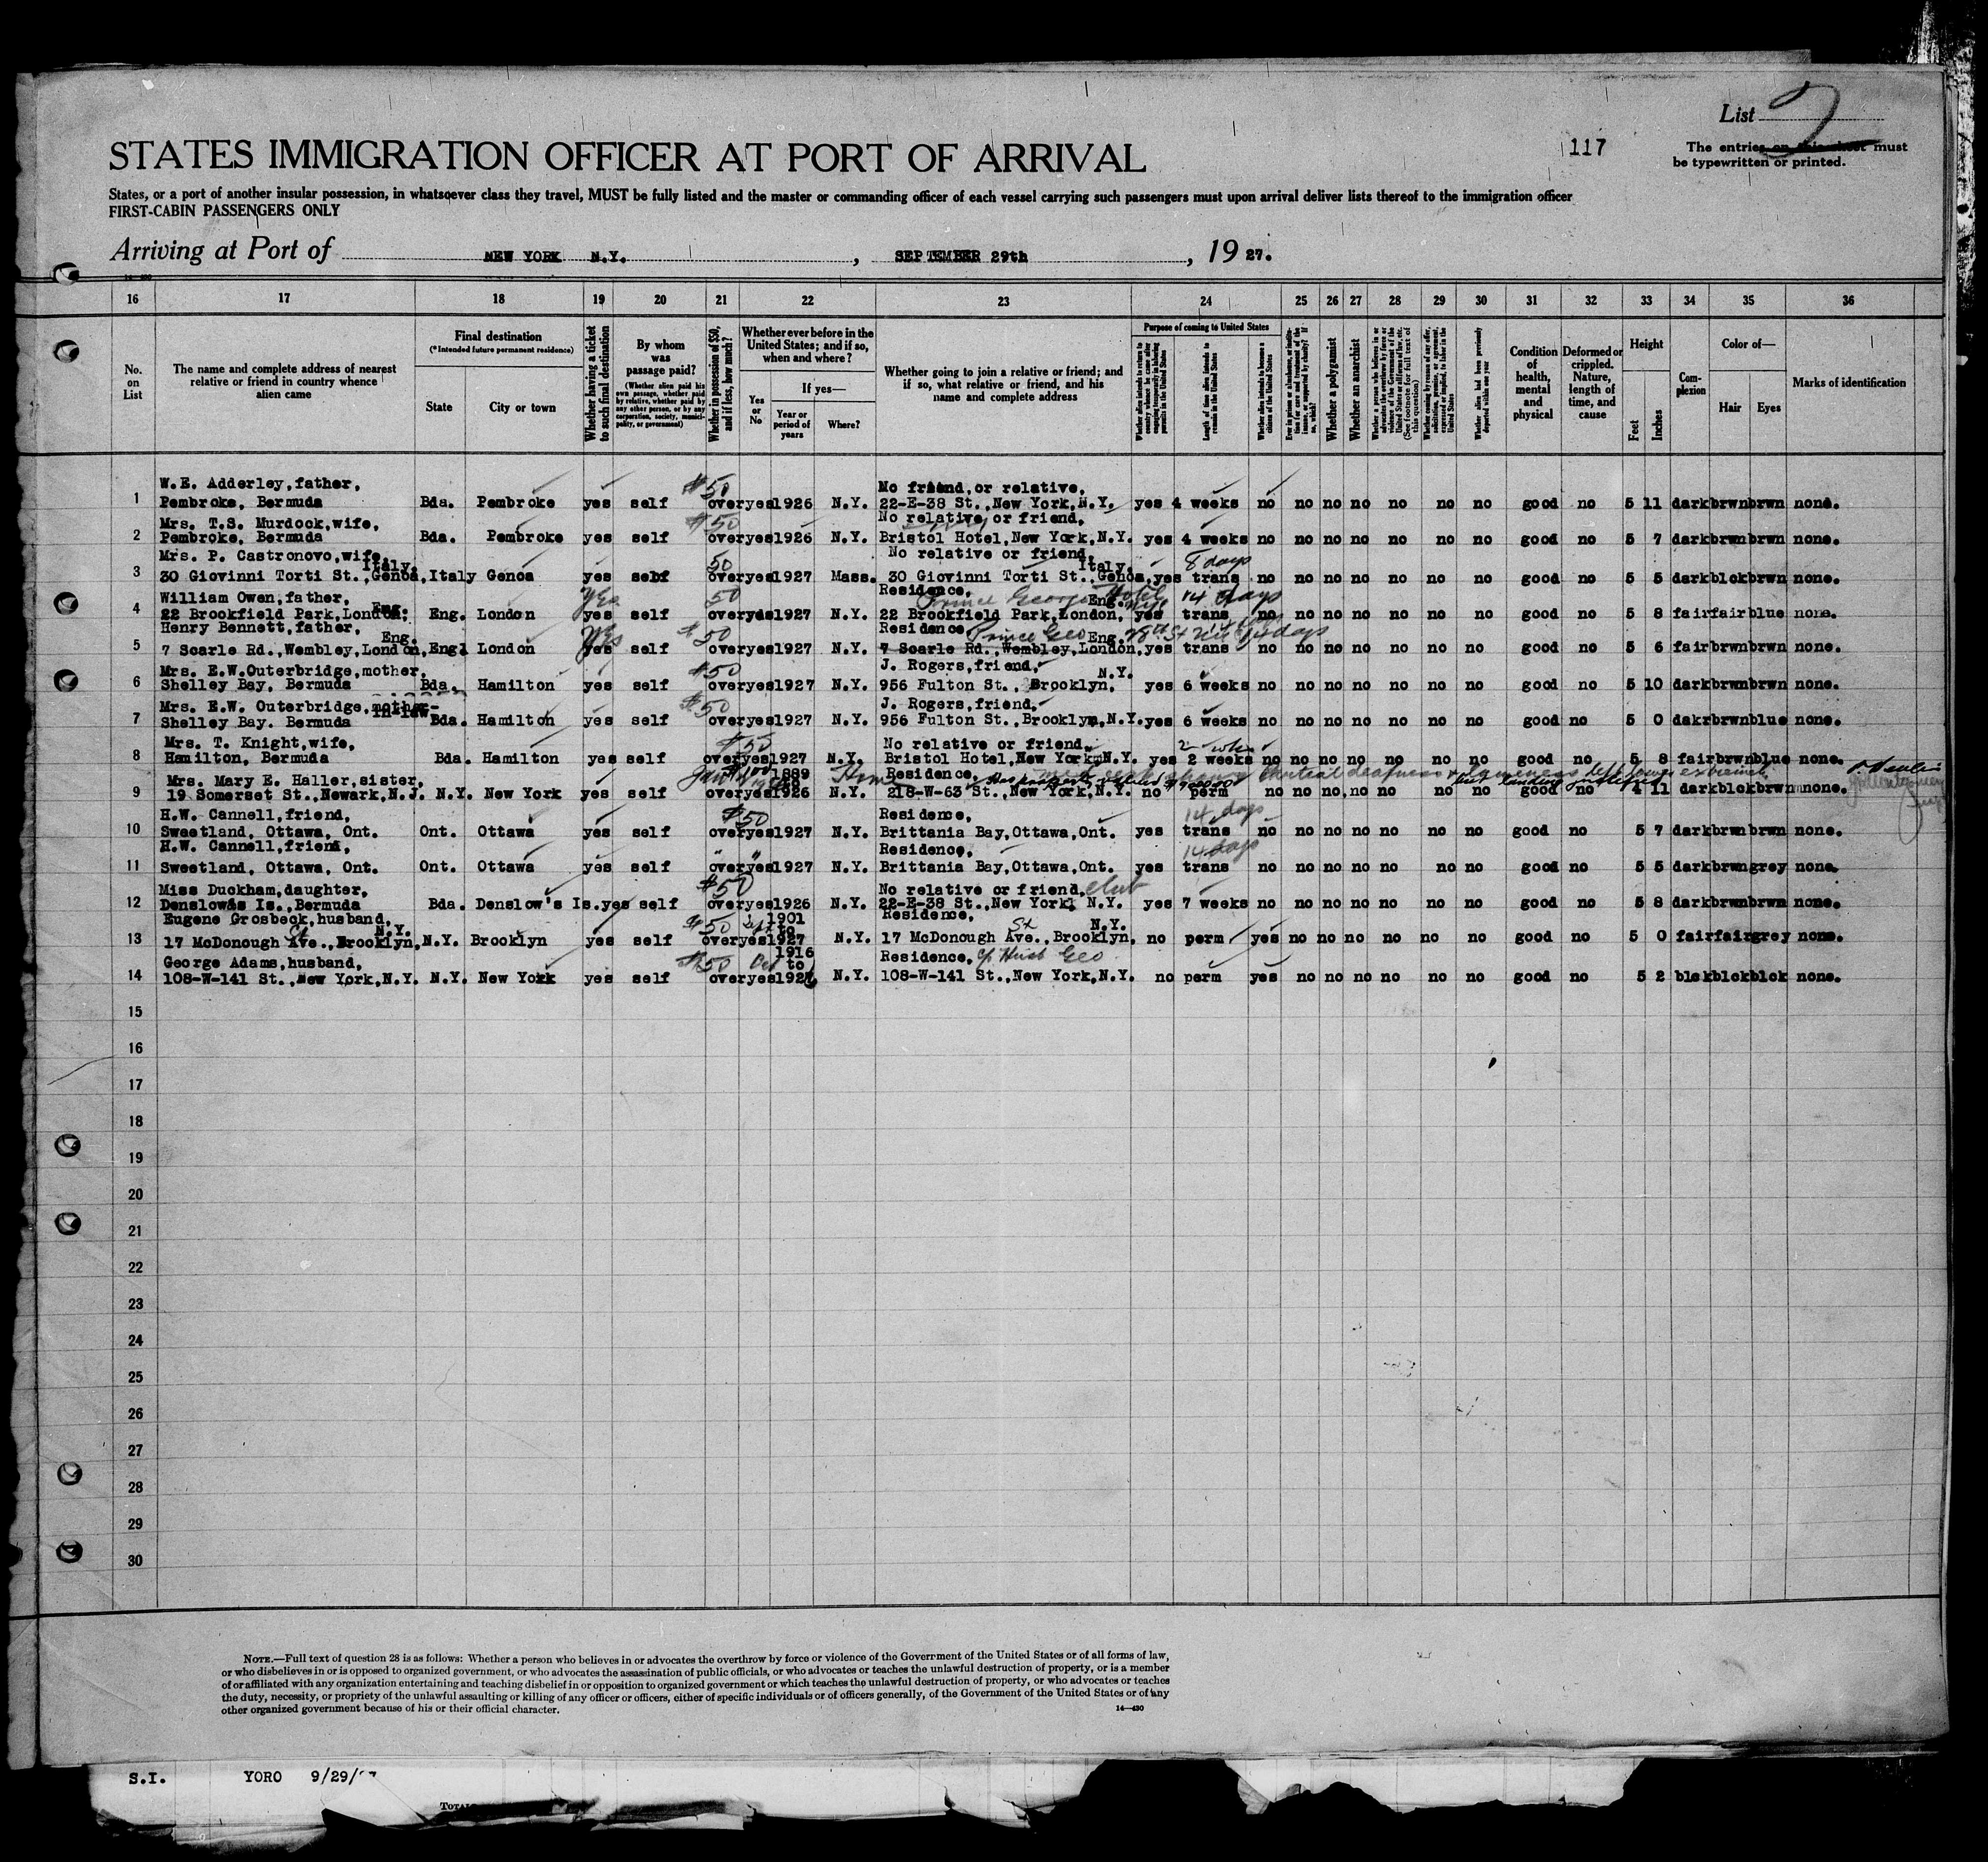 List 2
117
The entries on this sheet must
be typewritten or printed.
STATES IMMIGRATION OFFICER AT PORT OF ARRIVAL
States, or a port of another insular possession, in whatsoever class they travel, MUST be fully listed and the master or commanding officer of each vessel carrying such passengers must upon arrival deliver lists thereof to the immigration officer
FIRST-CABIN PASSENGERS ONLY
Arriving at Port of NEW YORK N.Y. , SEPTEMBER 29th , 19 27.
16 17 18 19 20 21 22 23 24 25 26 27 28 29 30 31 32 33 34 35 36
No. on List
The name and complete address of nearest relative or friend in country whence alien came
Final destination
(*Intended future permanent residence)
State
City or town
Whether having a ticket to such final destination
By whom was passage paid?
(Whether alien paid his own passage, whether paid by relative, whether paid by any other person, or by any corporation, society, municipality, or government)
Whether in possession of $50, and if less, how much?
Whether ever before in the United States; and if so, when and where?
Yes or No
If yes—
Year or period of years
Where?
Whether going to join a relative or friend; and if so, what relative or friend, and his name and complete address
Purpose of coming to United States
Length of time alien intends to remain in the United States
Whether alien intends to become a citizen of the United States
Whether a polygamist
Whether an anarchist
Whether alien had been previously deported within one year
Condition of health, mental and physical
Deformed or crippled. Nature, length of time, and cause
Height
Feet
Inches
Complexion
Color of—
Hair
Eyes
Marks of identification
W.E. Adderley,father, $50 No friend,or relative,
1 Pembroke, Bermuda Bda. Pembroke yes self over yes 1926 N.Y. 22-E-38 St.,New York,N.Y. yes 4 weeks no no no no no no no good no 5 11 dark brwn brwn none.
Mrs. T.S. Murdock,wife, $50 No relative or friend,
2 Pembroke, Bermuda Bda. Pembroke yes self over yes 1926 N.Y. Bristol Hotel,New York,N.Y. yes 4 weeks no no no no no no no good no 5 7 dark brwn brwn none.
Mrs. P. Castronovo,wife, Italy, 50 No relative or friend, Italy, 8 days
3 30 Giovinni Torti St.,Genoa, Italy Genoa yes self over yes 1927 Mass. 30 Giovinni Torti St.,Genoa, yes trans no no no no no no no good no 5 5 dark blck brwn none.
William Owen,father, Eng. Yes 50 Residence, Prince George Hotel Eng. 14 days
4 22 Brookfield Park,London, Eng. London yes self over yes 1927 N.Y. 22 Brookfield Park,London, yes trans no no no no no no no good no 5 8 fair fair blue none.
Henry Bennett,father, Eng. Yes $50 Residence, Prince Geo Eng. 28th St 14 days
5 7 Scarle Rd.,Wembley,London, Eng. London yes self over yes 1927 N.Y. 7 Scarle Rd.,Wembley,London, yes trans no no no no no no no good no 5 6 fair brwn brwn none.
Mrs. E.W.Outerbridge,mother, $50 J. Rogers,friend, N.Y.
6 Shelley Bay, Bermuda Bda. Hamilton yes self over yes 1927 N.Y. 956 Fulton St., Brooklyn, yes 6 weeks no no no no no no no good no 5 10 dark brwn brwn none.
Mrs. E.W. Outerbridge,mother-in-law $50 J. Rogers,friend,
7 Shelley Bay. Bermuda Bda. Hamilton yes self over yes 1927 N.Y. 956 Fulton St.,Brooklyn,N.Y. yes 6 weeks no no no no no no no good no 5 0 dakr brwn blue none.
Mrs. T. Knight,wife, $50 No relative or friend,
8 Hamilton, Bermuda Bda. Hamilton yes self over yes 1927 N.Y. Bristol Hotel,New York,N.Y. yes 2 weeks no no no no no no no good no 5 8 fair brwn blue none.
Mrs. Mary E. Haller,sister, $100 1889 Residence, partial deafness lameness left lower extremity
9 19 Somerset St.,Newark,N.J. N.Y. New York yes self over yes 1926 N.Y. 218-W-63 St.,New York,N.Y. no perm no no no no no no no good no 4 11 dark blck brwn none.
H.W. Cannell,friend, $50 Residence, 14 days
10 Sweetland, Ottawa, Ont. Ont. Ottawa yes self over yes 1927 N.Y. Brittania Bay,Ottawa,Ont. yes trans no no no no no no no good no 5 7 dark brwn brwn none.
H.W. Cannell,friend, " " Residence, 14 days
11 Sweetland, Ottawa, Ont. Ont. Ottawa yes self over yes 1927 N.Y. Brittania Bay,Ottawa,Ont. yes trans no no no no no no no good no 5 5 dark brwn grey none.
Miss Duckham,daughter, $50 No relative or friend, club
12 Denslow's Is.,Bermuda Bda. Denslow's Is. yes self over yes 1926 N.Y. 22-E-38 St.,New York, N.Y. yes 7 weeks no no no no no no no good no 5 8 dark brwn brwn none.
Eugene Grosbeck,husband, St N.Y. $50 Sept 1901 to Residence, St N.Y.
13 17 McDonough Ave., Brooklyn, N.Y. Brooklyn yes self over yes 1927 N.Y. 17 McDonough Ave., Brooklyn, no perm yes no no no no no no good no 5 0 fair fair grey none.
George Adams,husband, $50 Oct 1916 to Residence, c/o Husb Geo
14 108-W-141 St.,New York,N.Y. N.Y. New York yes self over yes 1927 N.Y. 108-W-141 St.,New York,N.Y. no perm yes no no no no no no good no 5 2 blck blck blck none.
15
16
17
18
19
20
21
22
23
24
25
26
27
28
29
30
NOTE.—Full text of question 28 is as follows: Whether a person who believes in or advocates the overthrow by force or violence of the Government of the United States or of all forms of law,
or who disbelieves in or is opposed to organized government, or who advocates the assassination of public officials, or who advocates or teaches the unlawful destruction of property, or is a member
of or affiliated with any organization entertaining and teaching disbelief in or opposition to organized government or which teaches the unlawful destruction of property, or who advocates or teaches
the duty, necessity, or propriety of the unlawful assaulting or killing of any officer or officers, either of specific individuals or of officers generally, of the Government of the United States or of any
other organized government because of his or their official character.
14—430
S.I. YORO 9/29/
TOTAL